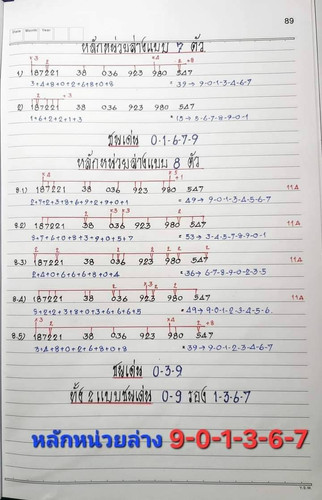 89
หลักหน่วยล่างแบบ 7 ตัว
1) 187221 38 036 923 980 547
3+4+8+0+2+6+8+0+8 * 39 → 9-0-1-3-4-6-7
2) 187221 38 036 923 980 547
1+6+2+2+1+3 * 15 → 5-6-7-8-9-0-1
ชนเด่น 0-1-6-7-9
หลักหน่วยล่างแบบ 8 ตัว
8.1) 187221 38 036 923 980 547 11A
= 49 → 9-0-1-2-3-4-5-6-7
8.2) 187221 38 036 923 980 547 11A
= 53 → 3-4-5-7-8-9-0-1
8.3) 187221 38 036 923 980 547 11A
2+4+0+6+6+6+8+0+4 = 36 → 6-7-8-9-0-2-3-5
8.4) 187221 38 036 923 980 547 11A
* 49 → 9-0-1-2-3-4-5-6
8.5) 187221 38 036 923 980 547
3+4+8+0+2+6+8+0+8 * 39 → 9-0-1-2-3-4-6-7
ชนเด่น 0-3-9
ทั้ง 2 แบบชนเด่น 0-9 รอง 1-3-6-7
หลักหน่วยล่าง 9-0-1-3-6-7